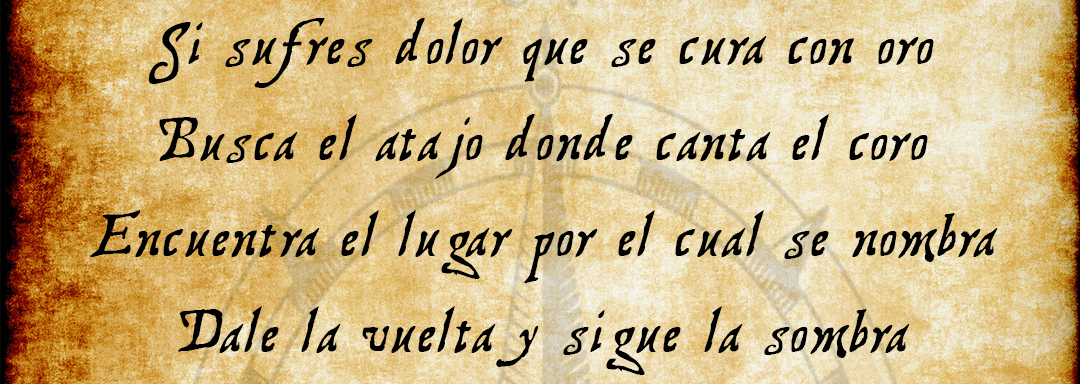 Si sufres dolor que se cura con oro
Busca el atajo donde canta el coro
Encuentra el lugar por el cual se nombra
Dale la vuelta y sigue la sombra